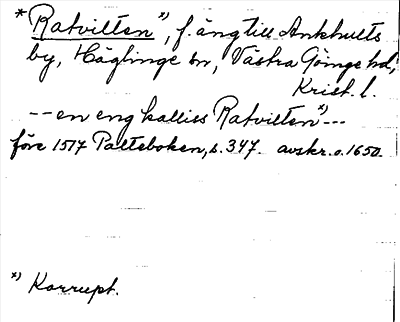 * Ratvilten *), f. äng till Ankhults
by, Häglinge sn, Västra Göinge hd,
Krist. l.
-- en eng kalliss Ratvilten *) ---
före 1517 Palteboken, s. 347. avskr. o. 1650.
*) Korrupt.